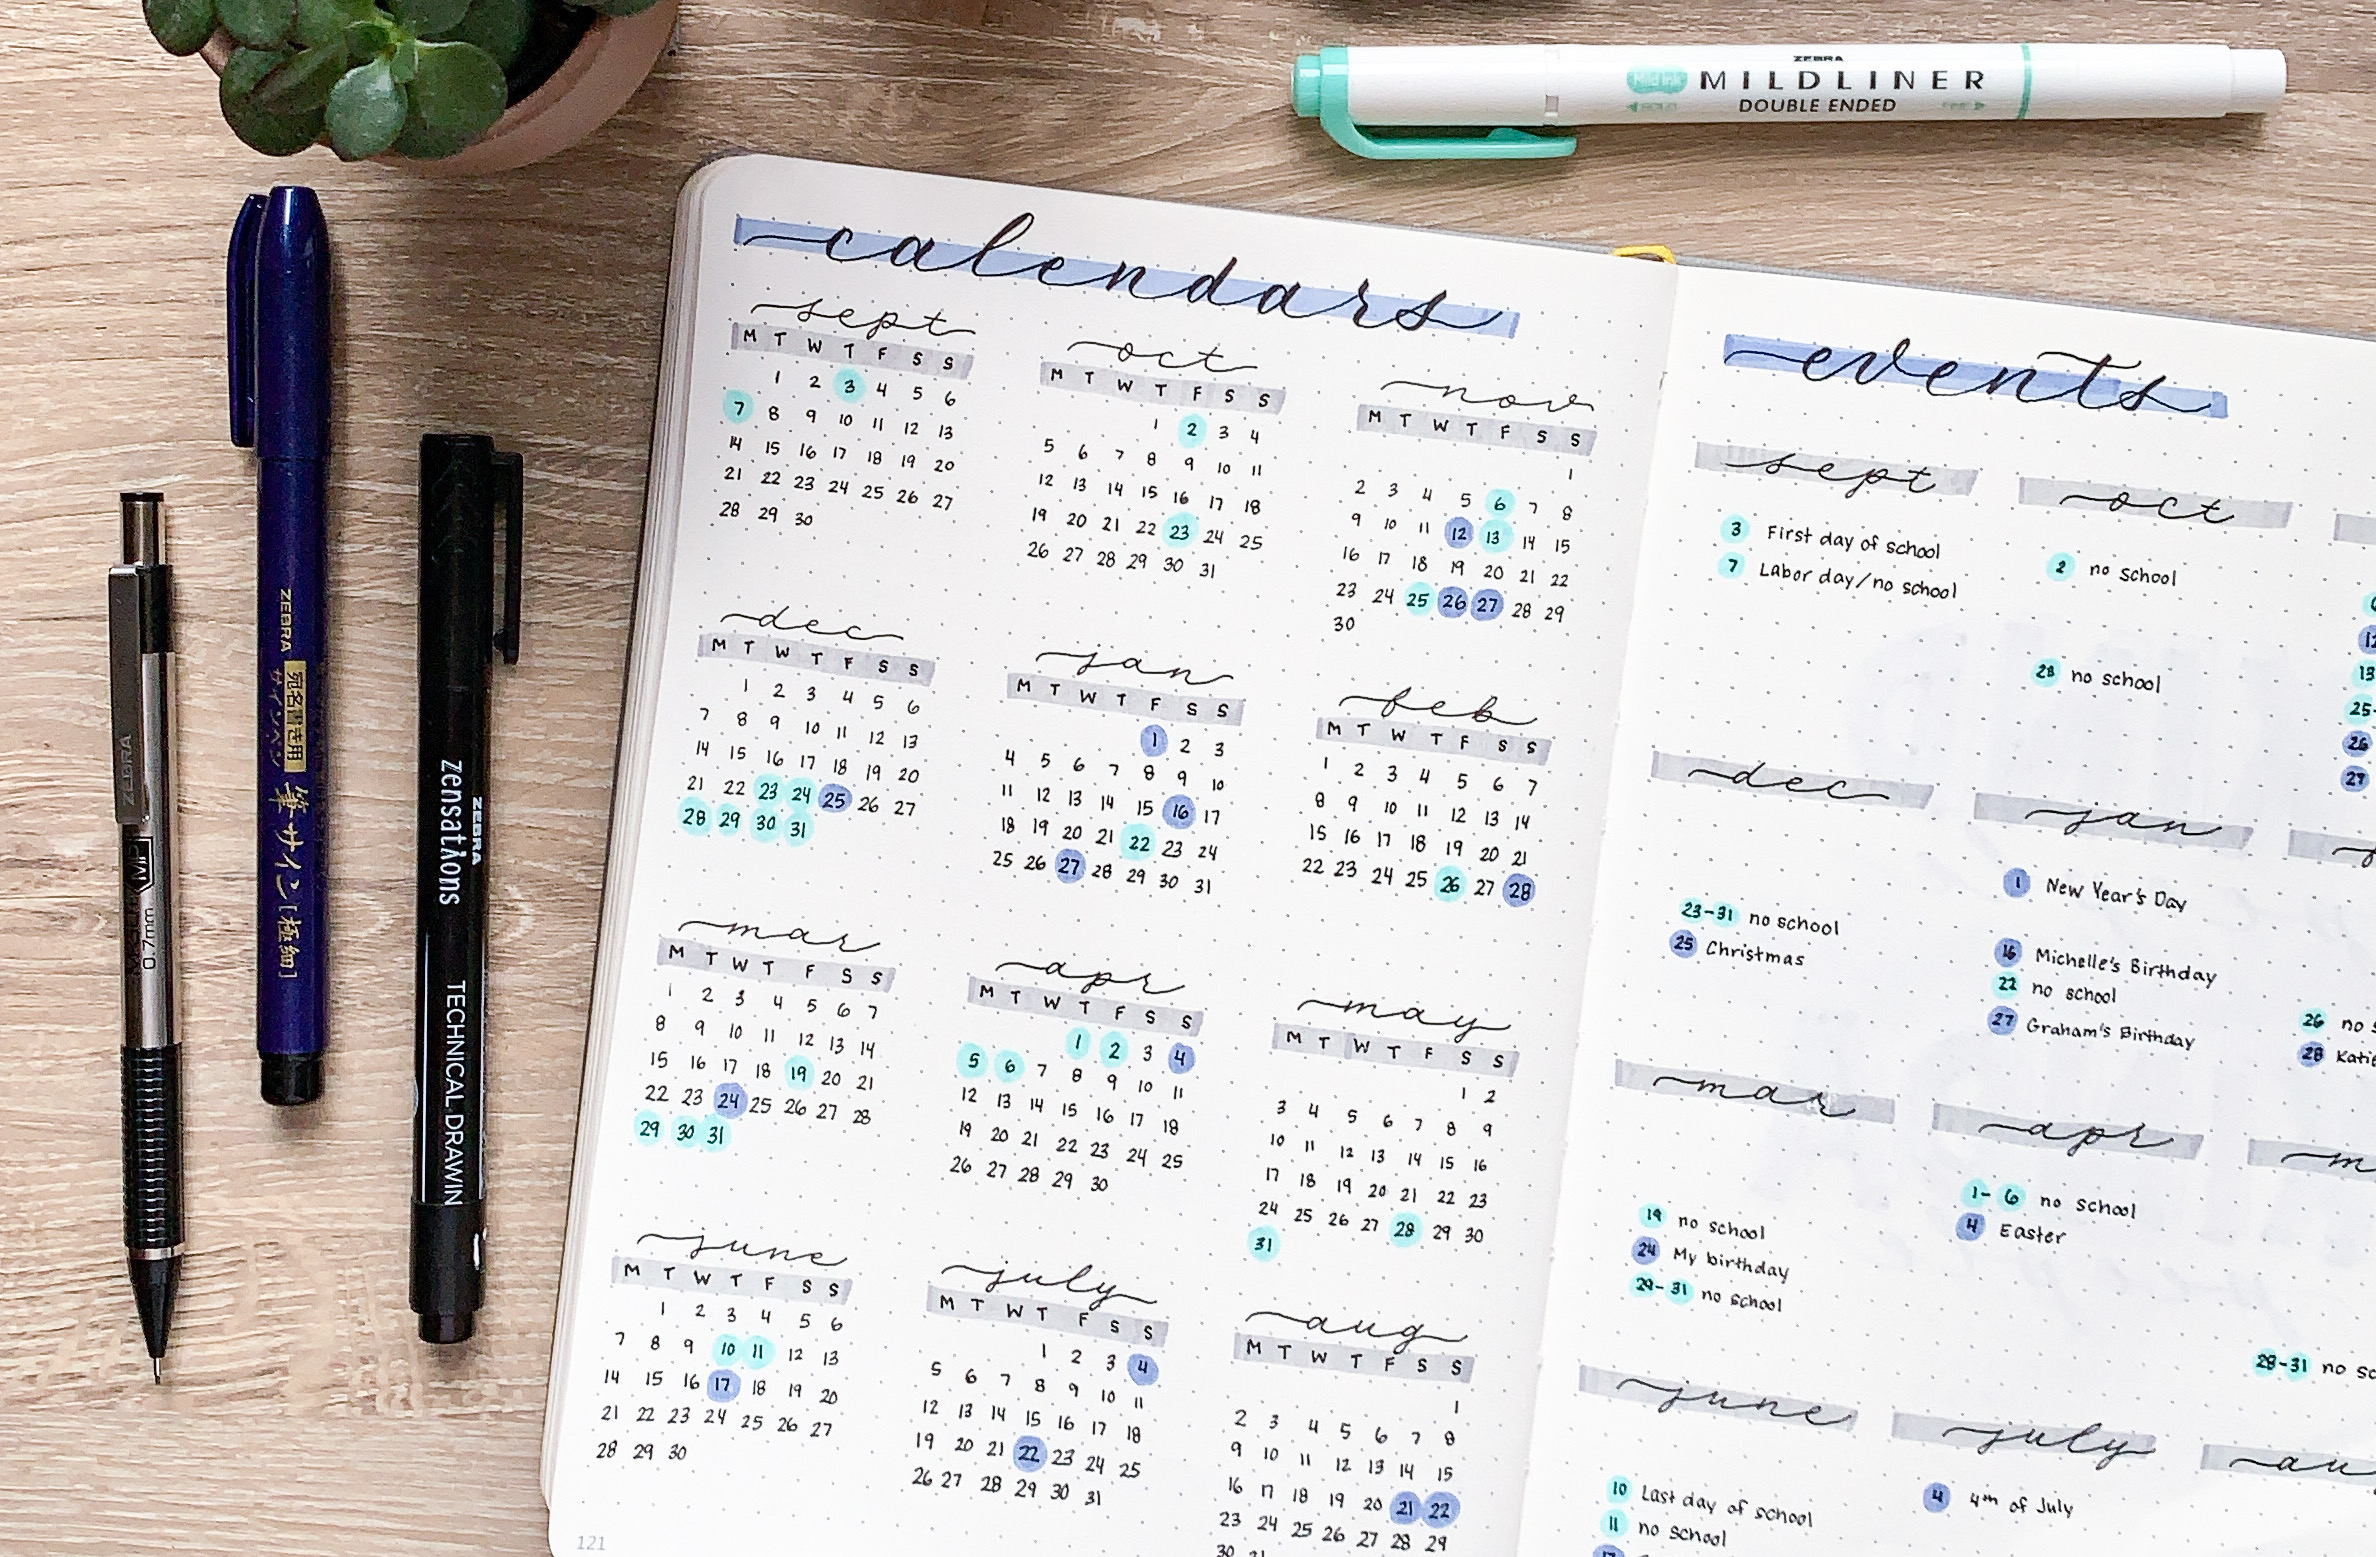 ZEBRA
Mild Ink MILDLINER
DOUBLE ENDED
ZEBRA
0.7mm
ZEBRA 宛名書き用
サインペン 筆サイン[極細]
ZEBRA
zensations TECHNICAL DRAWIN
calendars
sept
M T W T F S S
1 2 3 4 5 6
7 8 9 10 11 12 13
14 15 16 17 18 19 20
21 22 23 24 25 26 27
28 29 30
oct
M T W T F S S
1 2 3 4
5 6 7 8 9 10 11
12 13 14 15 16 17 18
19 20 21 22 23 24 25
26 27 28 29 30 31
nov
M T W T F S S
1
2 3 4 5 6 7 8
9 10 11 12 13 14 15
16 17 18 19 20 21 22
23 24 25 26 27 28 29
30
dec
M T W T F S S
1 2 3 4 5 6
7 8 9 10 11 12 13
14 15 16 17 18 19 20
21 22 23 24 25 26 27
28 29 30 31
jan
M T W T F S S
1 2 3
4 5 6 7 8 9 10
11 12 13 14 15 16 17
18 19 20 21 22 23 24
25 26 27 28 29 30 31
feb
M T W T F S S
1 2 3 4 5 6 7
8 9 10 11 12 13 14
15 16 17 18 19 20 21
22 23 24 25 26 27 28
mar
M T W T F S S
1 2 3 4 5 6 7
8 9 10 11 12 13 14
15 16 17 18 19 20 21
22 23 24 25 26 27 28
29 30 31
apr
M T W T F S S
1 2 3 4
5 6 7 8 9 10 11
12 13 14 15 16 17 18
19 20 21 22 23 24 25
26 27 28 29 30
may
M T W T F S S
1 2
3 4 5 6 7 8 9
10 11 12 13 14 15 16
17 18 19 20 21 22 23
24 25 26 27 28 29 30
31
june
M T W T F S S
1 2 3 4 5 6
7 8 9 10 11 12 13
14 15 16 17 18 19 20
21 22 23 24 25 26 27
28 29 30
july
M T W T F S S
1 2 3 4
5 6 7 8 9 10 11
12 13 14 15 16 17 18
19 20 21 22 23 24 25
26 27 28 29 30 31
aug
M T W T F S S
1
2 3 4 5 6 7 8
9 10 11 12 13 14 15
16 17 18 19 20 21 22
23 24 25 26 27 28 29
30 31
121
events
sept
3 First day of school
7 Labor day/no school
oct
2 no school
28 no school
12
13
25-
26
27
dec
23-31 no school
25 Christmas
jan
1 New Year's Day
16 Michelle's Birthday
22 no school
27 Graham's Birthday
26 no s
28 Katie
mar
19 no school
24 My birthday
29-31 no school
apr
1-6 no school
4 Easter
m
28-31 no sc
june
10 Last day of school
11 no school
17
july
4 4th of July
au